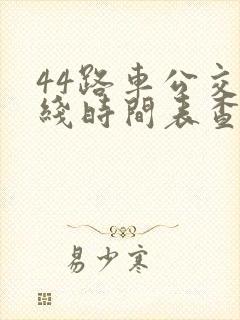 44路車公交
綫時間表查
易少寒